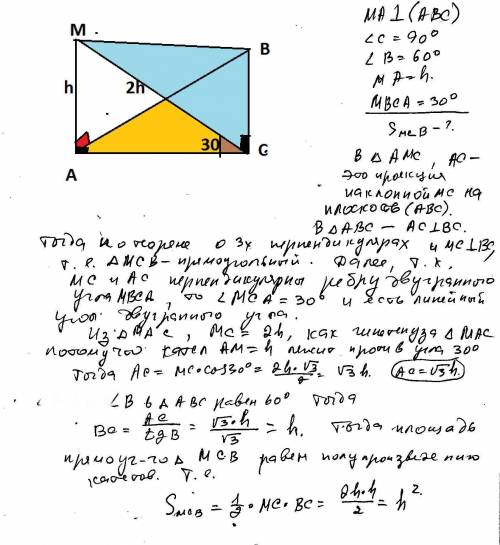 MA⊥(ABC)
∠C = 90°
∠B = 60°
MA = h.
MBCA = 30°
S мсв - ?
M
B
h
2h
30
A
C
В △ AMC, AC -
это проекция
наклонной MC на
плоскость (ABC).
В △ABC - AC⊥BC.
Тогда по теореме о 3х перпендикулярах и MC⊥BC,
т.е. △MCB - прямоугольный. Далее, т.к.
MC и AC перпендикулярны ребру двугранного
угла MBCA, то ∠MCA = 30° и есть линейный
угол двугранного угла.
Из △MAC, MC = 2h, как гипотенуза △MAC
потому что катет AM = h лежит против угла 30°
Тогда AC = MC·cos30° = 2h·√3/2 = √3 h. AC = √3 h.
∠B в △ABC равен 60° Тогда
BC = AC/tgB = √3·h/√3 = h. Тогда площадь
прямоуг-го △ MCB равен полупроизведению
катетов. Т.е.
S мсв = 1/2 · MC · BC = 2h·h/2 = h².